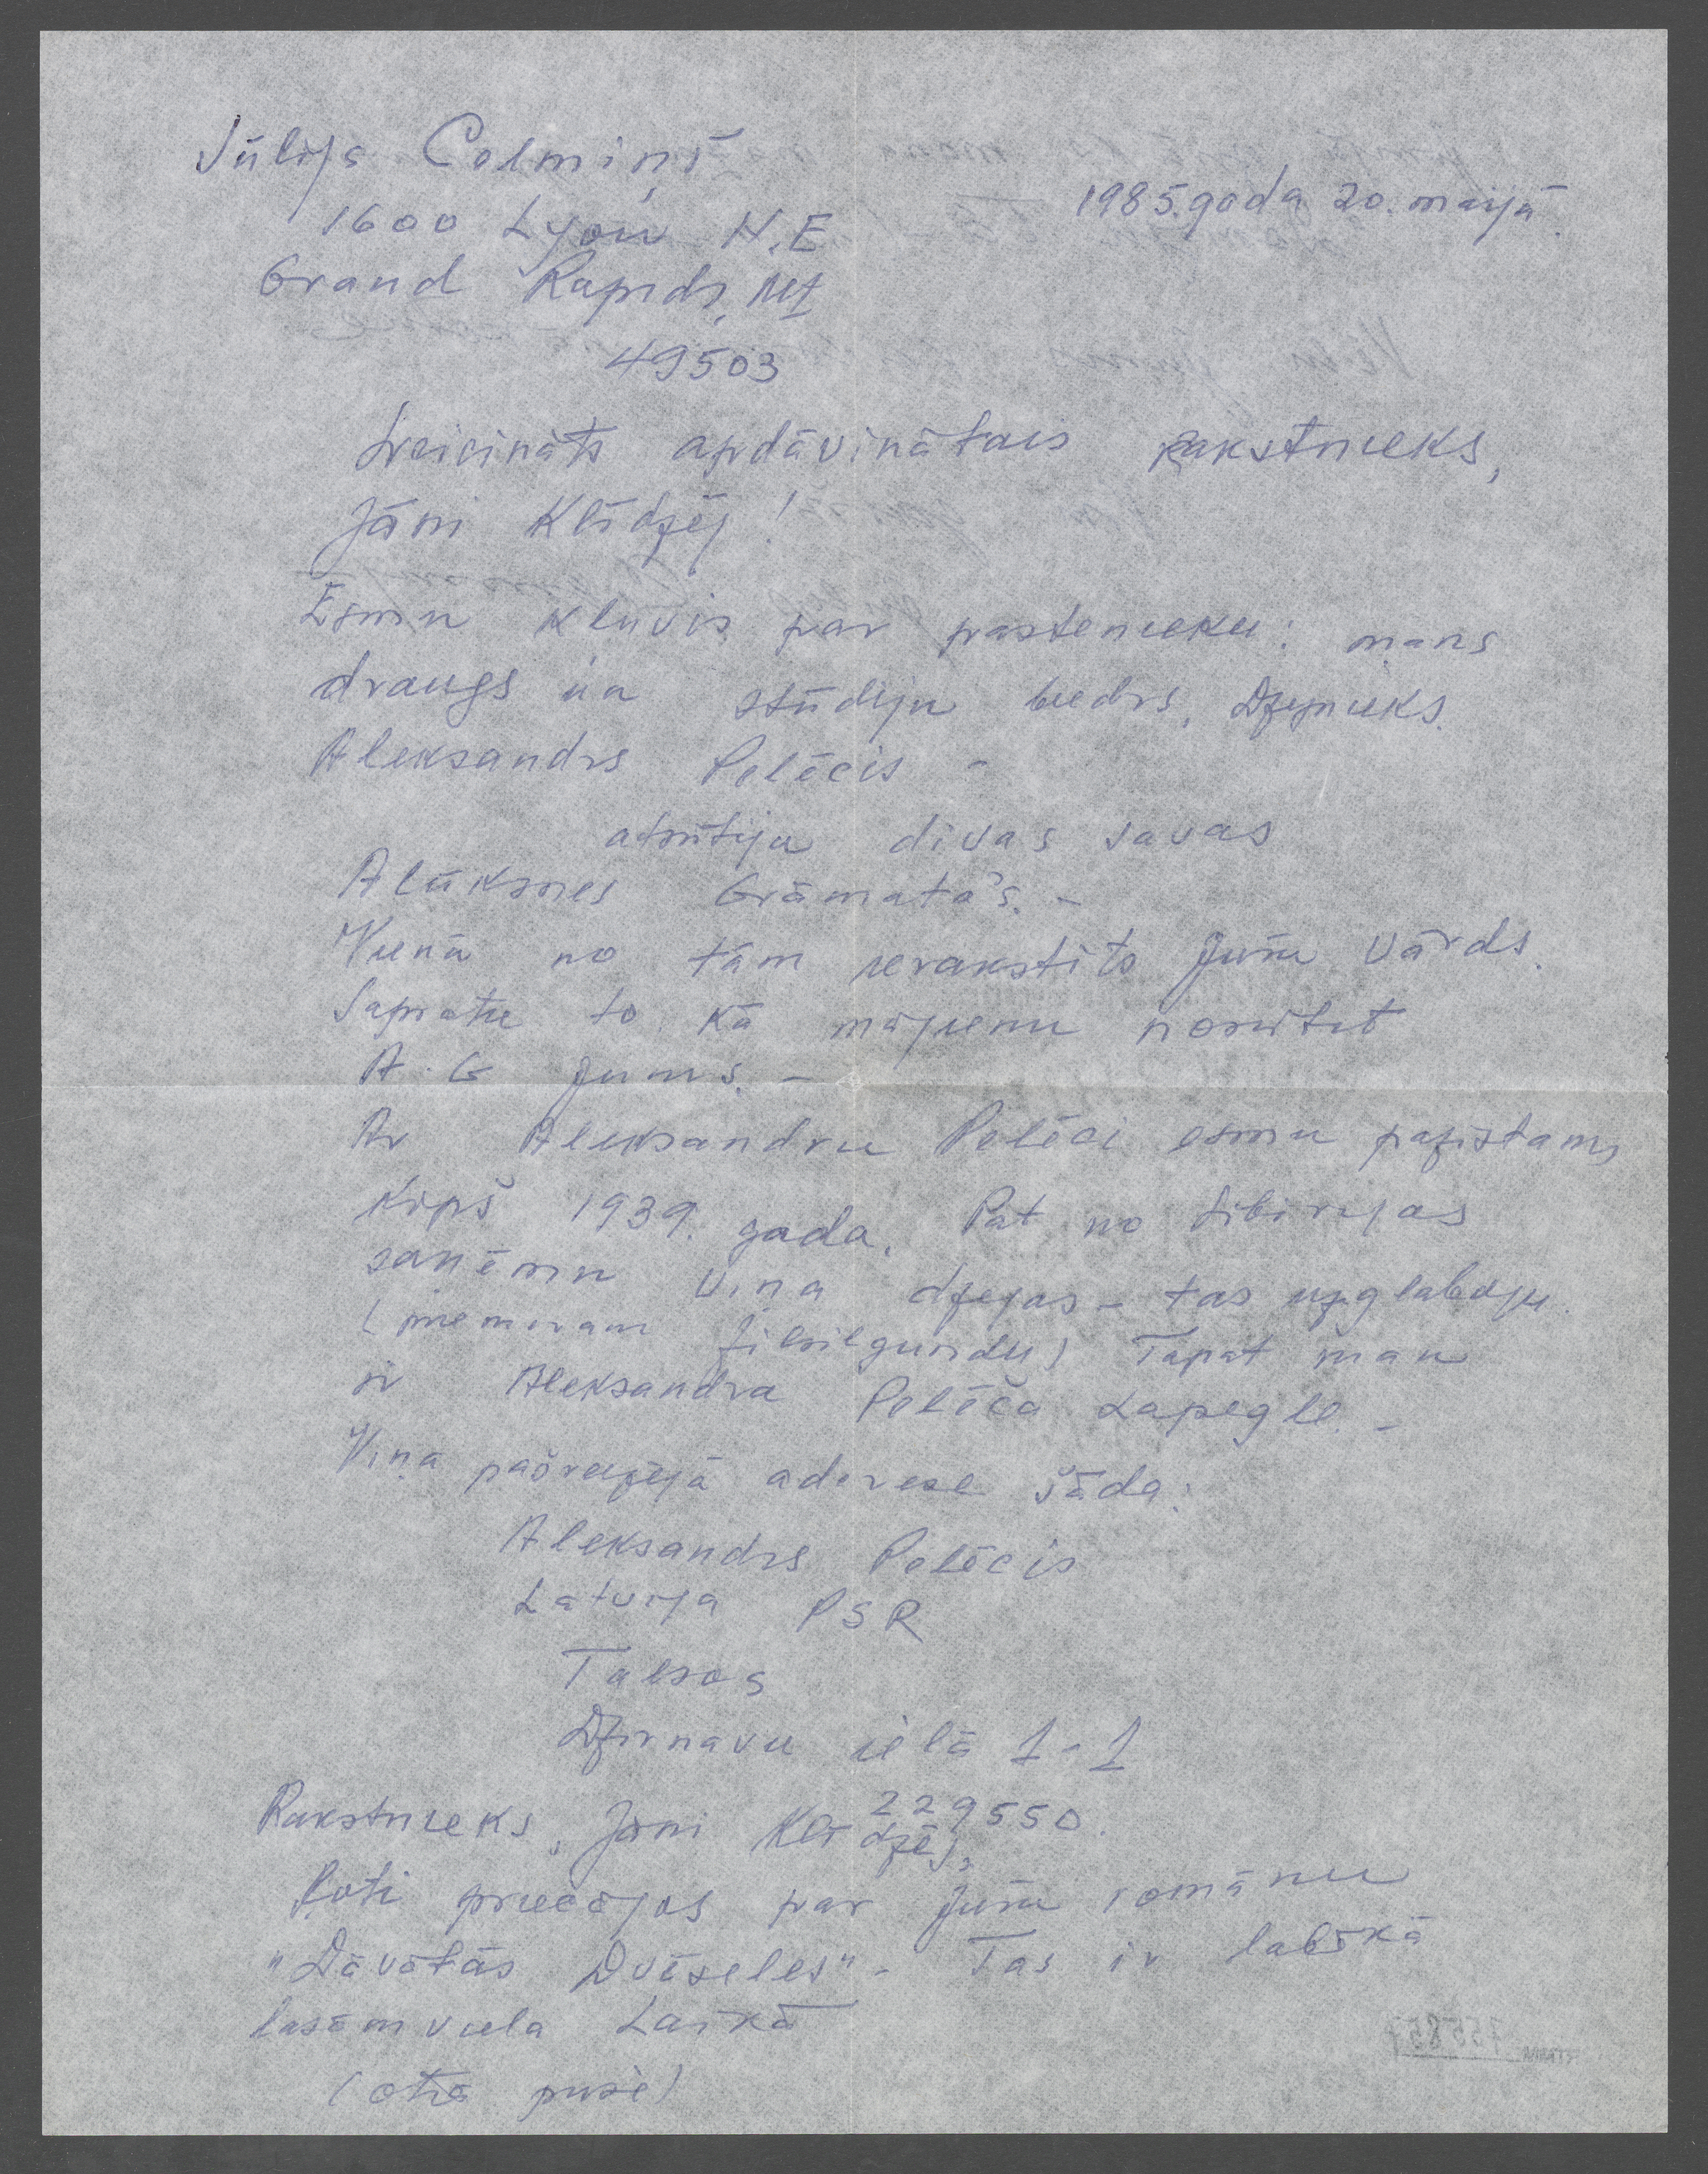 Jūlijs Celmiņš
1985.gada 20. maijā.
1600 Lyon N.E
Grand Rapids, MI
49503
Sveicināts apdāvinātais rakstnieks,
Jāni Klīdzēj!
Esmu kļuvis par pastenieku: mans
draugs un stūdiju biedrs, Dzejnieks
Aleksandrs Pelēcis –
atsūtija divas savas
Alūksnes Grāmatas. –
Vienā no tām ierakstīts Jūsu vārds.
Sapratu to kā mājienu nosūtīt
A. G Jums. –
Ar Aleksandru Pelēci esmu pazistams
Kopš 1939. gada. Pat no Sibirijas
saņēmu viņa dzejas – tas uzglabāju.
(piemēram Zilsilgundu) Tāpat man
ir Aleksandra Pelēča Lapegle –
Viņa pašreizējā adrese šāda:
Aleksandrs Pelēcis
Latvija PSR
Talsos
Dzirnavu ielā 1-1
229550.
Rakstnieks, Jāni Klīdzēj,
Ļoti priecājos par Jūsu romānu
"Dāvātās Dvēseles" – Tas ir labākā
lasāmviela Laikā
(otrā pusē)